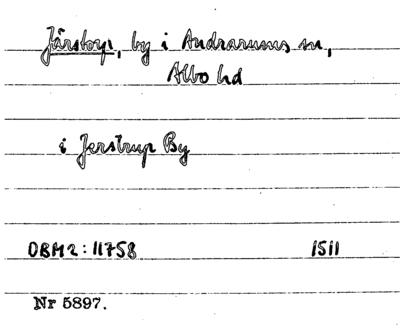 Järstorp, by i Andrarums sn,
Albo hd
i Jerstrup By
OBM2: 11758 1511
Nr 5897.